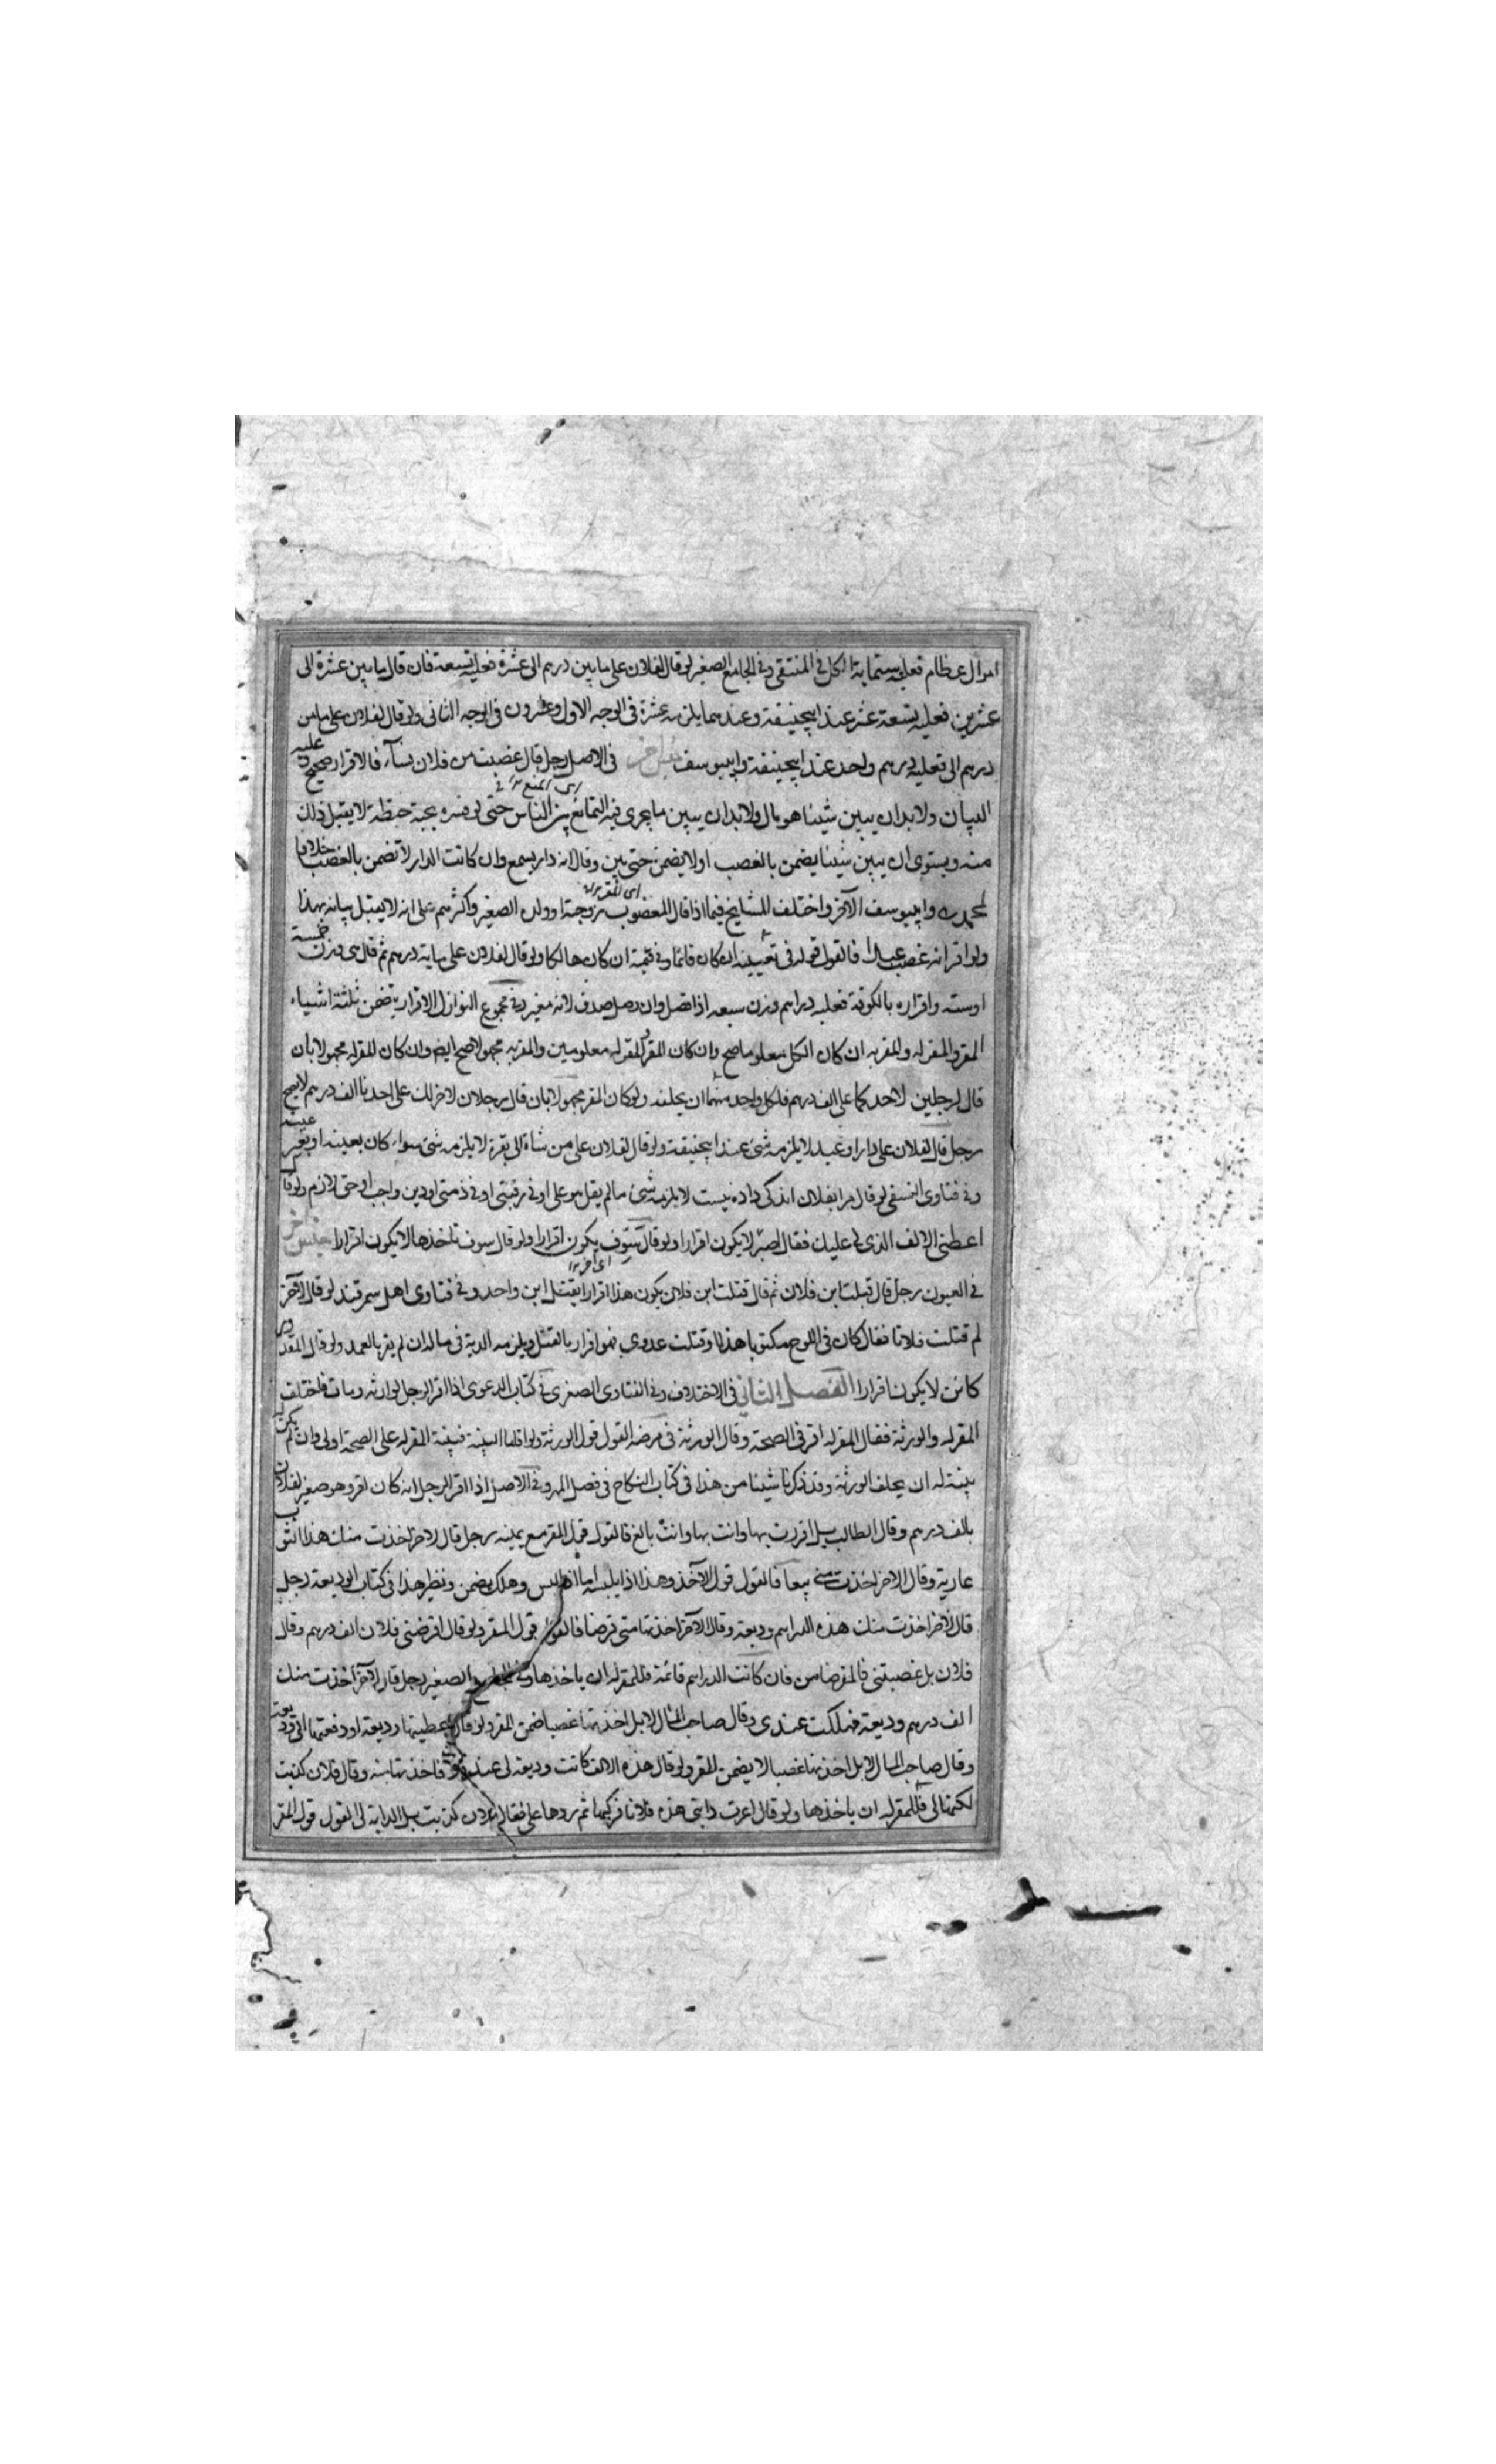 اموال عظام فعليه ستماية الكل في المنتقى وفي الجامع الصغير لو قال لفلان على ما بين درهم الى عشرة فعليه تسعة فان قال ما بين عشرة الى
عشرين فعليه تسعة عشر عند ابيحنيفة وعندهما يلزمه عشرة في الوجه الاول وعشرون في الوجه الثاني ولو قال لفلان على ما من
درهم الى فعليه درهم واحد عند ابيحنيفة وابيوسف جنس اخر في الاصل رجل قال غصبت من فلان شيأ فالاقرار صحيح وعليه
البيان ولا بد ان يبين شيئا هو مال ولا بد ان يبين ما يجري فيه التمانع بين الناس حتى لو فسره بحبة حنطة لا يقبل ذلك
منه ويستوي ان يبين شيئا يضمن بالغصب اولا يضمن حتى بين وقال انه دار يسمع وان كانت الدار لا تضمن بالغصب خلافا
لمحمد وابيوسف الآخر واختلف المشايخ فيما اذا قال المغصوب زوجته او ولده الصغير واكثرهم على انه لا يقبل بيانه بهذا
ولو اقر انه غصب عبدا فالقول قوله في تعيينه ان كان قائما وفي قيمته ان كان هالكا ولو قال لفلان على ماية درهم ثم قال هي وزن خمسة
او ستة واقراره بالكوفة فعليه دراهم وزن سبعه اذا فصل وان وصل صدق لانه مغير وفي مجموع النوازل الاقرار يتضمن ثلثة اشياء
المقر والمقر له والمقر به ان كان الكل معلوما صح وان كان المقر والمقر له معلومين والمقر به مجهولا صح ايضا وان كان المقر له مجهولا بان
قال لرجلين لاحدكما على الف درهم فلكل واحد منهما ان يحلفه ولو كان المقر مجهولا بان قال رجلان لاخر لك على احدنا الف درهم لا يصح
رجل قال لفلان على دار او عبد لا يلزمه شئ عند ابيحنيفة ولو قال لفلان على من شاة الى بقرة لا يلزمه شئ سواء كان بعينه او بغير عينه
وفي فتاوى النسفي لو قال مرا بفلان اندكى داده نيست لا يلزمه شئ ما لم يقل هو على او في رقبتي او في ذمتي او دين واجب او حق لازم ولو قال
اعطني الالف الذي لي عليك فقال اصبر لا يكون اقرارا ولو قال سوف يكون اقرارا ولو قال سوف تاخذها لا يكون اقرارا جنس اخر
في العيون رجل قال قتلت ابن فلان ثم قال قتلت ابن فلان يكون هذا اقرارا بقتل ابن واحد وفي فتاوى اهل سمرقند لو قال لآخر
لم قتلت فلانا فقال كان في اللوح مكتوبا هذا او قتلت عدوي فهو اقرار بالقتل ويلزمه الدية في ماله ان لم يقر بالعمد ولو قال المقدور
كائن لا يكون اقرارا الفصل الثاني في الاختلاف وفي الفتاوى الصغرى في كتاب الدعوى اذا اقر الرجل لوارثه ومات فاختلف
المقر له والورثة فقال المقر له اقر في الصحة وقال الورثة في مرضه القول قول الورثة ولو اقاما البينة فبينة المقر له على الصحة اولى وان لم يكن
بينة له ان يحلف الورثة وقد ذكرنا شيئا من هذا في كتاب النكاح في فصل المهر وفي الاصل اذا اقر الرجل انه كان اقر وهو صغير لفلان
بالف درهم وقال الطالب بل اقررت بها وانت بها وانت بالغ فالقول قول المقر مع يمينه رجل قال لاخر اخذت منك هذا الثوب
عارية وقال الاخر اخذت مني بيعا فالقول قول الآخذ وهذا اذا يلبسه اما اذا لبس وهلك يضمن ونظير هذا في كتاب الوديعة رجل
قال لآخر اخذت منك هذه الدراهم وديعة وقال الآخر اخذتها مني قرضا فالقول قول المقر ولو قال اقرضني فلان الف درهم وقال
فلان بل غصبتني فالمقر ضامن فان كانت الدراهم قائمة فللمقر له ان ياخذها وفي الجامع الصغير رجل قال لآخر اخذت منك
الف درهم وديعة فهلكت عندي وقال صاحب المال لا بل اخذتها غصبا ضمن المقر ولو قال اعطيتها وديعة او دفعتها الى وديعة
وقال صاحب المال لا بل اخذتها غصبا لا يضمن المقر ولو قال هذه الالف كانت وديعة لي عند فاخذتها منه وقال فلان كذبت
لكنها لي فللمقر له ان ياخذها ولو قال اعرت دابتي هذه فلانا فركبها ثم ردها على فقال فلان كذبت بل الدابة لي القول قول المقر